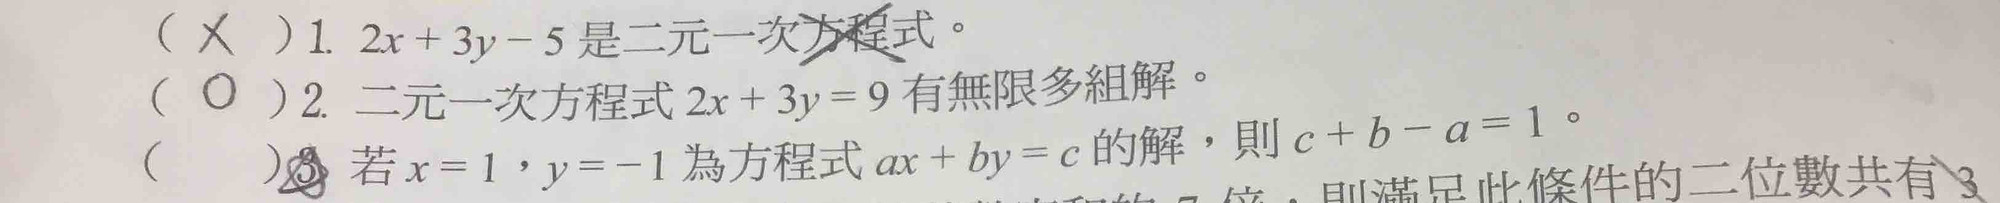 ( X ) 1. 2x + 3y - 5 是二元一次方程式。
( O ) 2. 二元一次方程式 2x + 3y = 9 有無限多組解。
( ) 3. 若 x = 1,y = -1 為方程式 ax + by = c 的解,則 c + b - a = 1。
7 倍,則滿足此條件的二位數共有 3